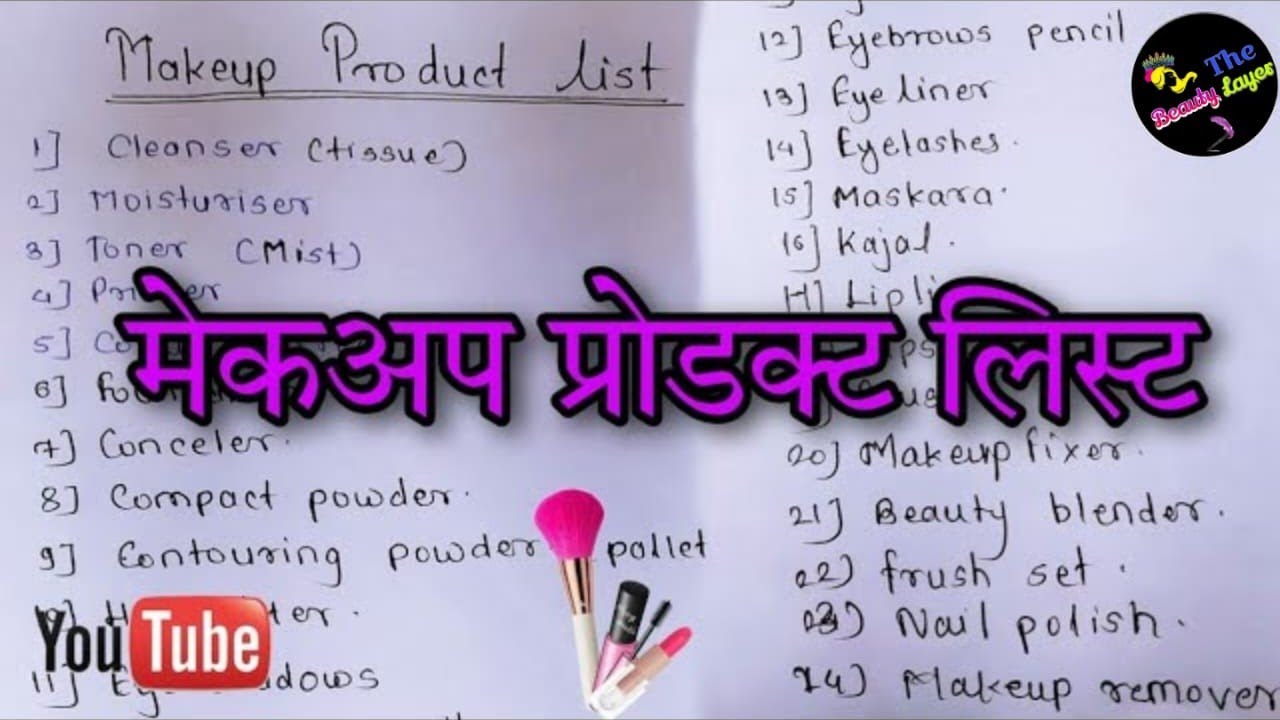 Makeup Product list
1] Cleanser (tissue)
2] Moisturiser
3] Toner (Mist)
4]
5]
6]
7] Conceler.
8] Compact powder.
9] Contouring powder pallet
11]
12] Eyebrows pencil
13] Eye liner
14] Eyelashes.
15] Maskara.
16] Kajal.
20) Makeup fixer.
21] Beauty blender.
22) frush set.
23) Nail polish.
24) Makeup remover
मेकअप प्रोडक्ट लिस्ट
The
Beauty Layer
YouTube